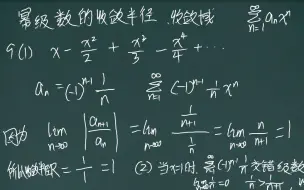 幂级数的收敛半径 收敛域 $\sum_{n=1}^{\infty} a_n x^n$
9 (1) $x - \frac{x^2}{2} + \frac{x^3}{3} - \frac{x^4}{4} + \cdots$
$a_n = (-1)^{n-1} \frac{1}{n}$ $\sum_{n=1}^{\infty} (-1)^{n-1} \frac{1}{n} x^n$
因为 $\lim_{n\to\infty} \left| \frac{a_{n+1}}{a_n} \right| = \lim_{n\to\infty} \frac{\frac{1}{n+1}}{\frac{1}{n}} = \lim_{n\to\infty} \frac{n}{n+1} = 1$
所以收敛半径 $R = \frac{1}{1} = 1$ (2) 当x=1时 $\sum_{n=1}^{\infty} (-1)^{n-1} \frac{1}{n}$ 交错级数
$= 0$ $\frac{1}{n} > \frac{1}{n+1}$